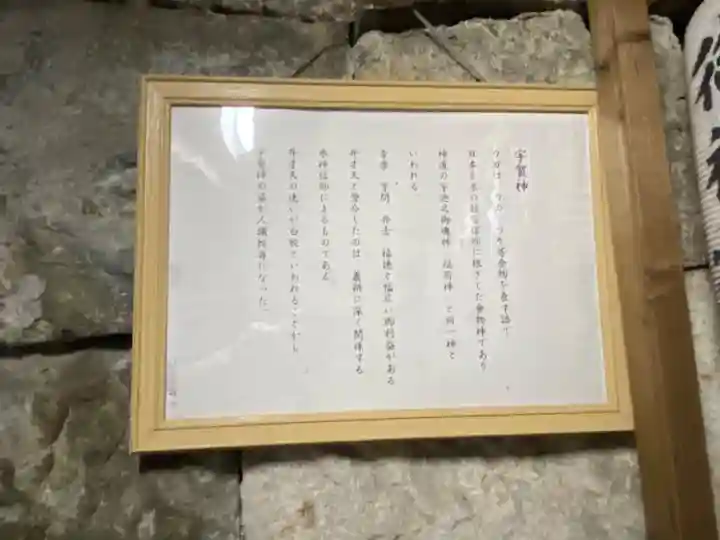 宇賀神
ウガは 等食物を表す語で
日本古来の 信仰に根ざした食物神であり
神道の宇迦之御魂神 稲荷神 と同一神と
いわれる
音楽 学問 弁舌 福徳と幅広い御利益がある
弁才天と習合したのは 農耕に深く関係する
水神信仰によるものである
弁才天の使いが白蛇といわれることから
宇賀神の姿が人頭蛇身になった。